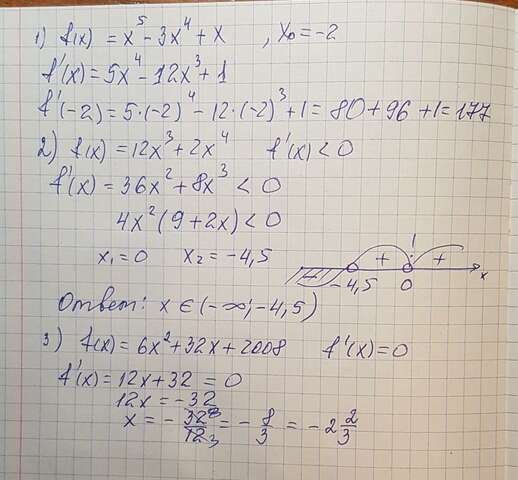 1) f(x) = x⁵ - 3x⁴ + x , x₀ = -2
f'(x) = 5x⁴ - 12x³ + 1
f'(-2) = 5·(-2)⁴ - 12·(-2)³ + 1 = 80 + 96 + 1 = 177
2) f(x) = 12x³ + 2x⁴ f'(x) < 0
f'(x) = 36x² + 8x³ < 0
4x²(9 + 2x) < 0
x₁ = 0 x₂ = -4,5
+ +
-4,5 0 x
Ответ: x ∈ (-∞; -4,5)
3) f(x) = 6x² + 32x + 2008 f'(x) = 0
f'(x) = 12x + 32 = 0
12x = -32
x = - 32 8/12 3 = - 8/3 = -2 2/3